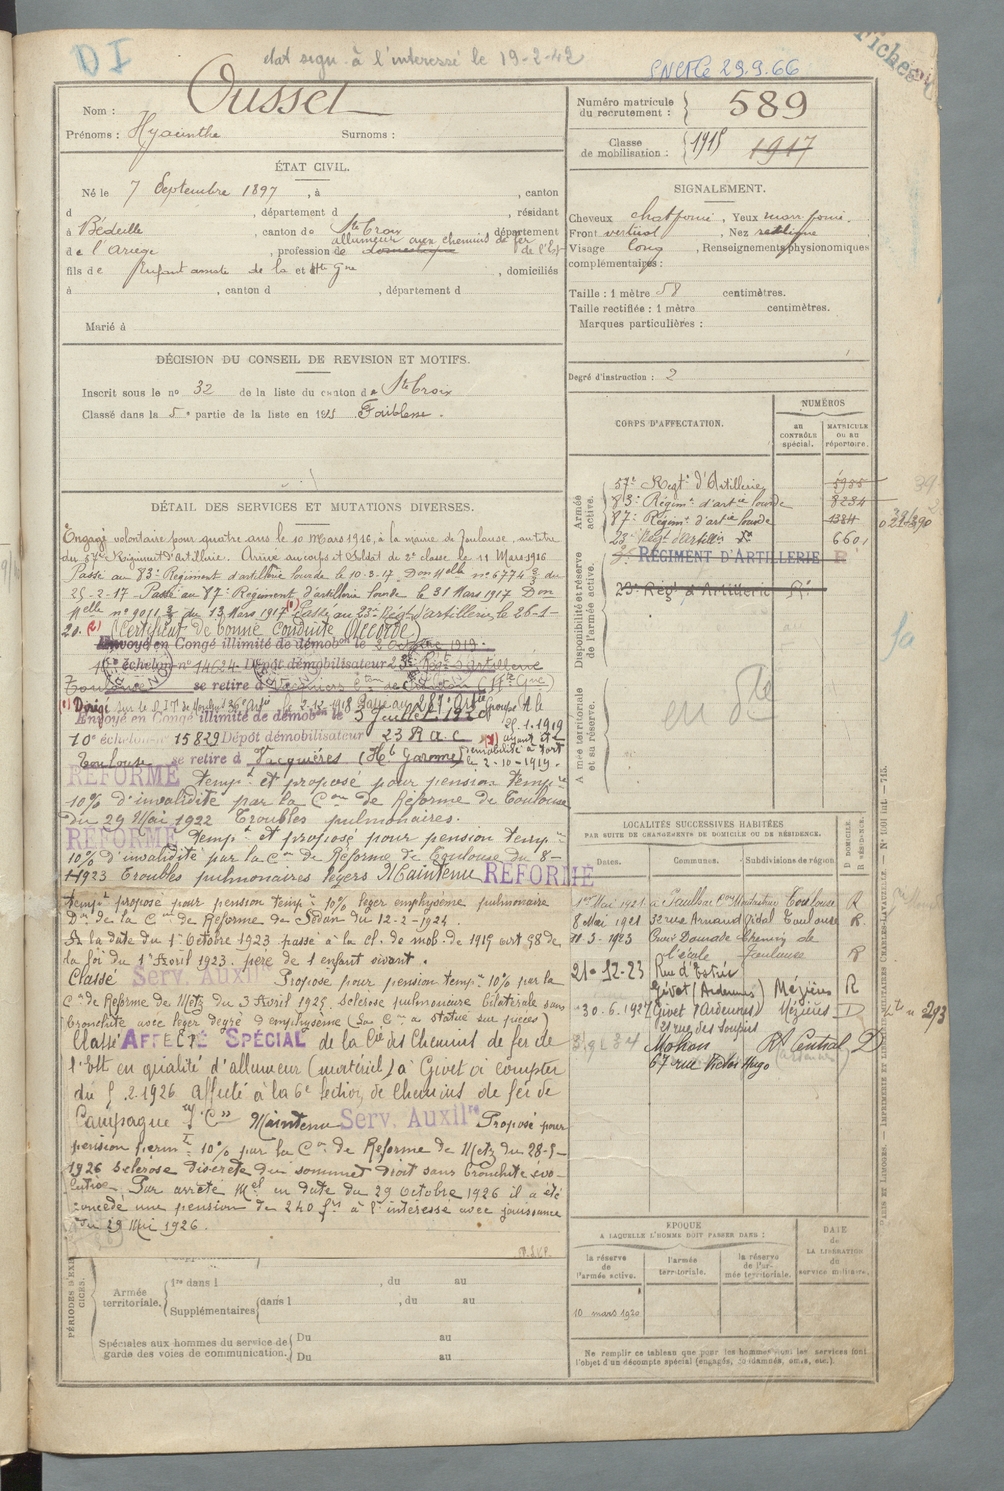 DI
état sign. à l'interessé le 19-2-42
29.9.66
Fiches
Nom : Ousset
Prénoms : Hyacinthe Surnoms :
Numéro matricule du recrutement : 589
Classe de mobilisation : 1915 1917
ÉTAT CIVIL.
Né le 7 Septembre 1897, à , canton
d , département d , résidant
à Bédeille, canton de Ste Croix département
allumeur aux chemins de fer
de l'Ariège, profession de domestique de l'Est
fils de Enfant assisté de la et Hte Gne, domiciliés
à , canton d , département d
Marié à
SIGNALEMENT.
Cheveux chat foncé, Yeux mar. foncé.
Front vertical, Nez rectiligne
Visage long, Renseignements physionomiques
complémentaires :
Taille : 1 mètre 58 centimètres.
Taille rectifiée : 1 mètre centimètres.
Marques particulières :
Degré d'instruction : 2
DÉCISION DU CONSEIL DE REVISION ET MOTIFS.
Inscrit sous le no 32 de la liste du canton de Ste Croix
Classé dans la 5e partie de la liste en 1915 Faiblesse.
DÉTAIL DES SERVICES ET MUTATIONS DIVERSES.
Engagé volontaire pour quatre ans le 10 Mars 1916, à la mairie de Toulouse, au titre
du 57e Régiment d'Artillerie. Arrivé au corps et Soldat de 2e classe le 11 Mars 1916
Passé au 83e Régiment d'artillerie lourde le 10-3-17. Don Melle no 6774 2/3 du
25-2-17 - Passé au 87e Régiment d'artillerie lourde le 31 Mars 1917 Don
Melle no 9011 2/3 du 13 Mars 1917 (1) Passé au 23e Régt d'artillerie le 26-1-
20. (2) (Certificat de bonne conduite Accordé)
Envoyé en Congé illimité de démobon le 2 Octobre 1919.
10e échelon no 14624 Dépôt démobilisateur 23e Régt d'Artillerie
Toulouse se retire à Vacquiers
(1) Dirigé sur le le 2.12.1918 Passé au 287e Artie Groupe A le
Envoyé en Congé illimité de démobon le 3 Juillet 1920 25.1.1919
10e échelon no 15829 Dépôt démobilisateur 23 R a c (2) ayant été
démobilisé à tort
Toulouse se retire à Vacquières (Hte Garonne) le 2-10-1919.
RÉFORMÉ tempt et proposé pour pension tempre
10% d'invalidité par la Con de Réforme de Toulouse
du 29 Mai 1922 Troubles pulmonaires.
RÉFORMÉ tempt et proposé pour pension tempre
10% d'invalidité par la Con de Réforme de Toulouse du 8-
1923 Troubles pulmonaires légers Maintenu RÉFORMÉ
tempt proposé pour pension tempre 10% léger emphysème pulmonaire
Don de la Con de Réforme de Sedan du 12-2-1924.
A la date du 1er Octobre 1923 passé à la cl. de mob. de 1915 art 58 de
la loi du 1er Avril 1923. père de 1 enfant vivant.
Classé Serv. Auxilre Proposé pour pension tempre 10% par la
Con de Réforme de Metz du 3 Avril 1925, sclérose pulmonaire bilatérale sans
bronchite avec léger degré d'emphysème (La Con a statué sur pièces)
Classé AFFECTÉ SPÉCIAL de la Cie des Chemins de fer de
l'Est en qualité d'allumeur (matériel) à Givet à compter
du 5.2.1926 affecté à la 6e section de chemins de fer de
Campagne "C" Maintenu Serv. Auxilre Proposé pour
pension perm. 10% par la Con de Réforme de Metz du 28-5-
1926 Sclérose discrète du sommet droit sans bronchite évo-
lutive. Par arrêté Mel en date du 29 Octobre 1926 il a été
concédé une pension de 240 frs à l'intéressé avec jouissance
du 29 Mai 1926.
T.S.V.P.
CORPS D'AFFECTATION.
NUMÉROS
au CONTRÔLE spécial.
MATRICULE ou au répertoire.
Armée active.
57e Regt d'Artillerie 5985
83e Régimt d'artie lourde 8234
87e Régimt d'artie lourde 1384
23e Régt d'artillerie 6601
RÉGIMENT D'ARTILLERIE R
Disponibilité et réserve de l'armée active.
23e Régt d'Artillerie Rt
Armée territoriale et sa réserve.
LOCALITÉS SUCCESSIVES HABITÉES
PAR SUITE DE CHANGEMENTS DE DOMICILE OU DE RÉSIDENCE.
Dates. Communes. Subdivisions de région. D DOMICILE R RÉSIDENCE.
1er Mai 1921 Toulouse R
8 Mai 1921 32 rue Arnaud Vidal Toulouse R.
11-3-1923 Chemin de
l'école Toulouse R
21-12-23 Rue d'Estrée
Givet (Ardennes) Mézières R
30.6.1927 Givet (Ardennes) Mézières D
Mohon Rt Central D
67 rue Victor Hugo
293
PARIS ET LIMOGES. — IMPRIMERIE ET LIBRAIRIE MILITAIRES CHARLES-LAVAUZELLE.
PÉRIODES D'EXERCICES.
Armée territoriale. 1re dans l , du au
Supplémentaires dans l , du au
Spéciales aux hommes du service de garde des voies de communication. Du au
Du au
ÉPOQUE
A LAQUELLE L'HOMME DOIT PASSER DANS :
la réserve de l'armée active. l'armée territoriale. la réserve de l'armée territoriale.
DATE de LA LIBÉRATION du service militaire.
10 mars 1920
Ne remplir ce tableau que pour les hommes dont les services font
l'objet d'un décompte spécial (engagés, condamnés, omis, etc.)